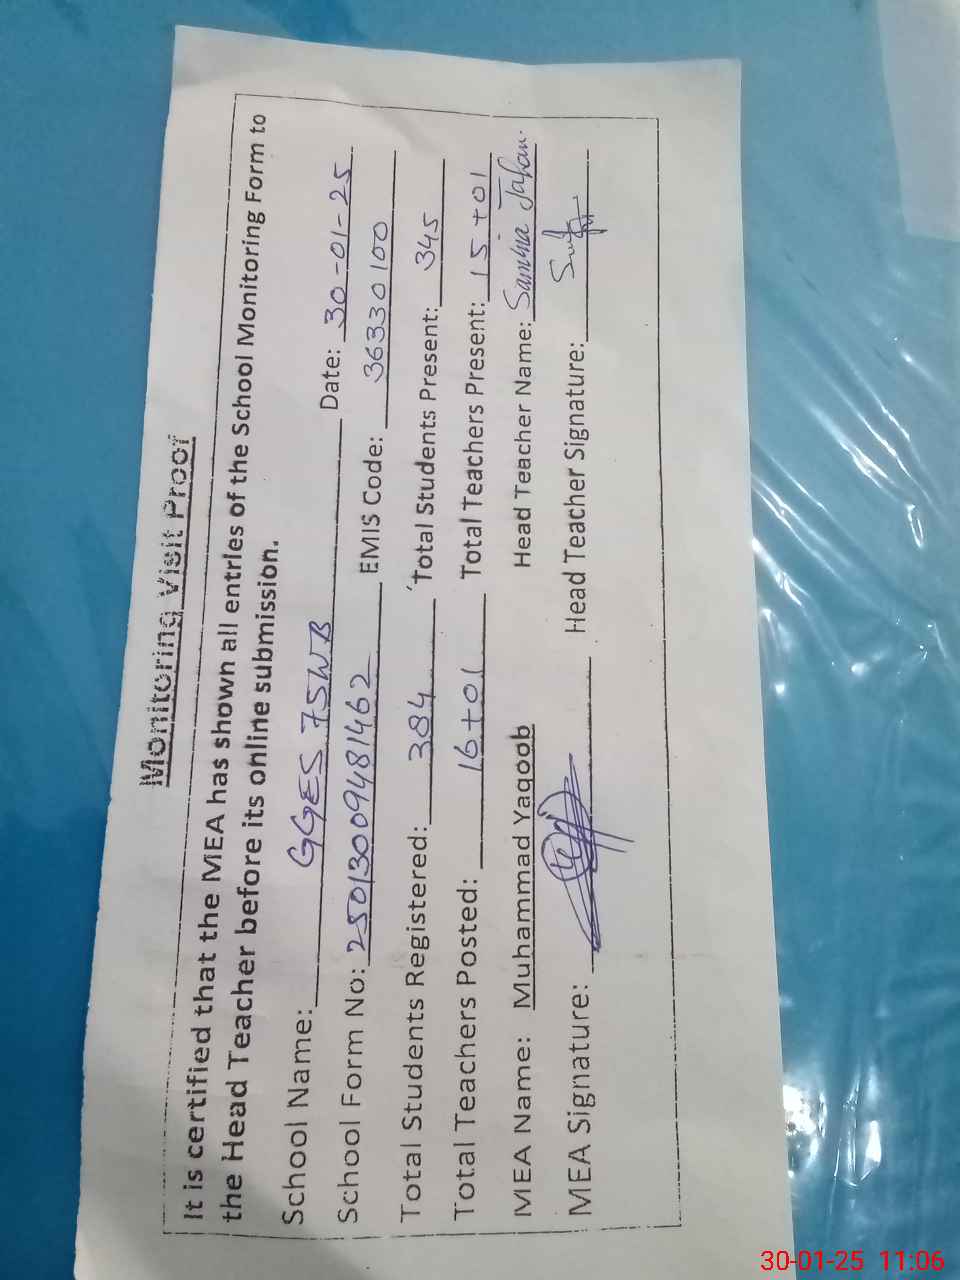 Monitoring Visit Proof
It is certified that the MEA has shown all entries of the School Monitoring Form to
the Head Teacher before its online submission.
School Name: GGES 75WB Date: 30-01-25
School Form No: 25013009481462 EMIS Code: 36330100
Total Students Registered: 384 Total Students Present: 345
Total Teachers Posted: 16+01 Total Teachers Present: 15+01
MEA Name: Muhammad Yaqoob Head Teacher Name: Samina Jahan.
MEA Signature: Head Teacher Signature:
30-01-25 11:06